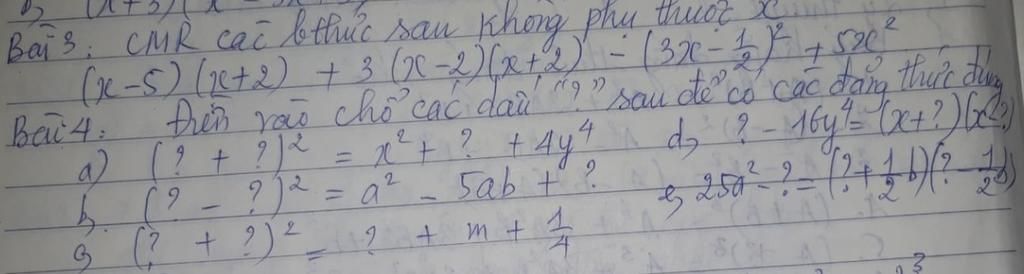 (x+3)(x
Bài 3: CMR các bthức sau không phụ thuộc x
(x-5)(x+2) + 3(x-2)(x+2) - (3x - 1/2)² + 5x²
Bài 4: Điền vào chỗ các dấu "?" sau để có các đẳng thức đúng
a) (? + ?)² = x² + ? + 4y⁴ d, ? - 16y⁴ = (x+?)(x-?)
b, (? - ?)² = a² - 5ab + ? e, 25a² - ? = (? + 1/2 b)(? - 1/2 b)
c, (? + ?)² = ? + m + 1/4